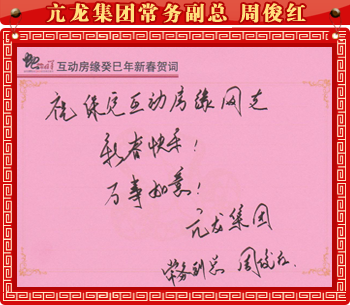 亢龙集团常务副总 周俊红
互动房缘癸巳年新春贺词
祝缘定互动房缘网友
新春快乐!
万事如意!
亢龙集团
常务副总 周俊红.